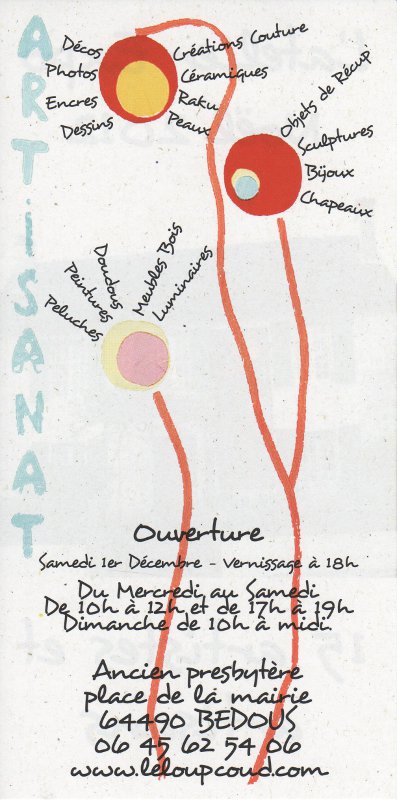 ARTISANAT
Décos
Photos
Encres
Dessins
Créations Couture
Céramiques
Raku
Peaux
Objets de Récup'
Sculptures
Bijoux
Chapeaux
Peluches
Peintures
Doudous
Meubles Bois
Luminaires
Ouverture
Samedi 1er Décembre - Vernissage à 18h
Du Mercredi au Samedi
De 10h à 12h et de 17h à 19h
Dimanche de 10h à midi.
Ancien presbytère
place de la mairie
64490 BEDOUS
06 45 62 54 06
www.leloupcoud.com